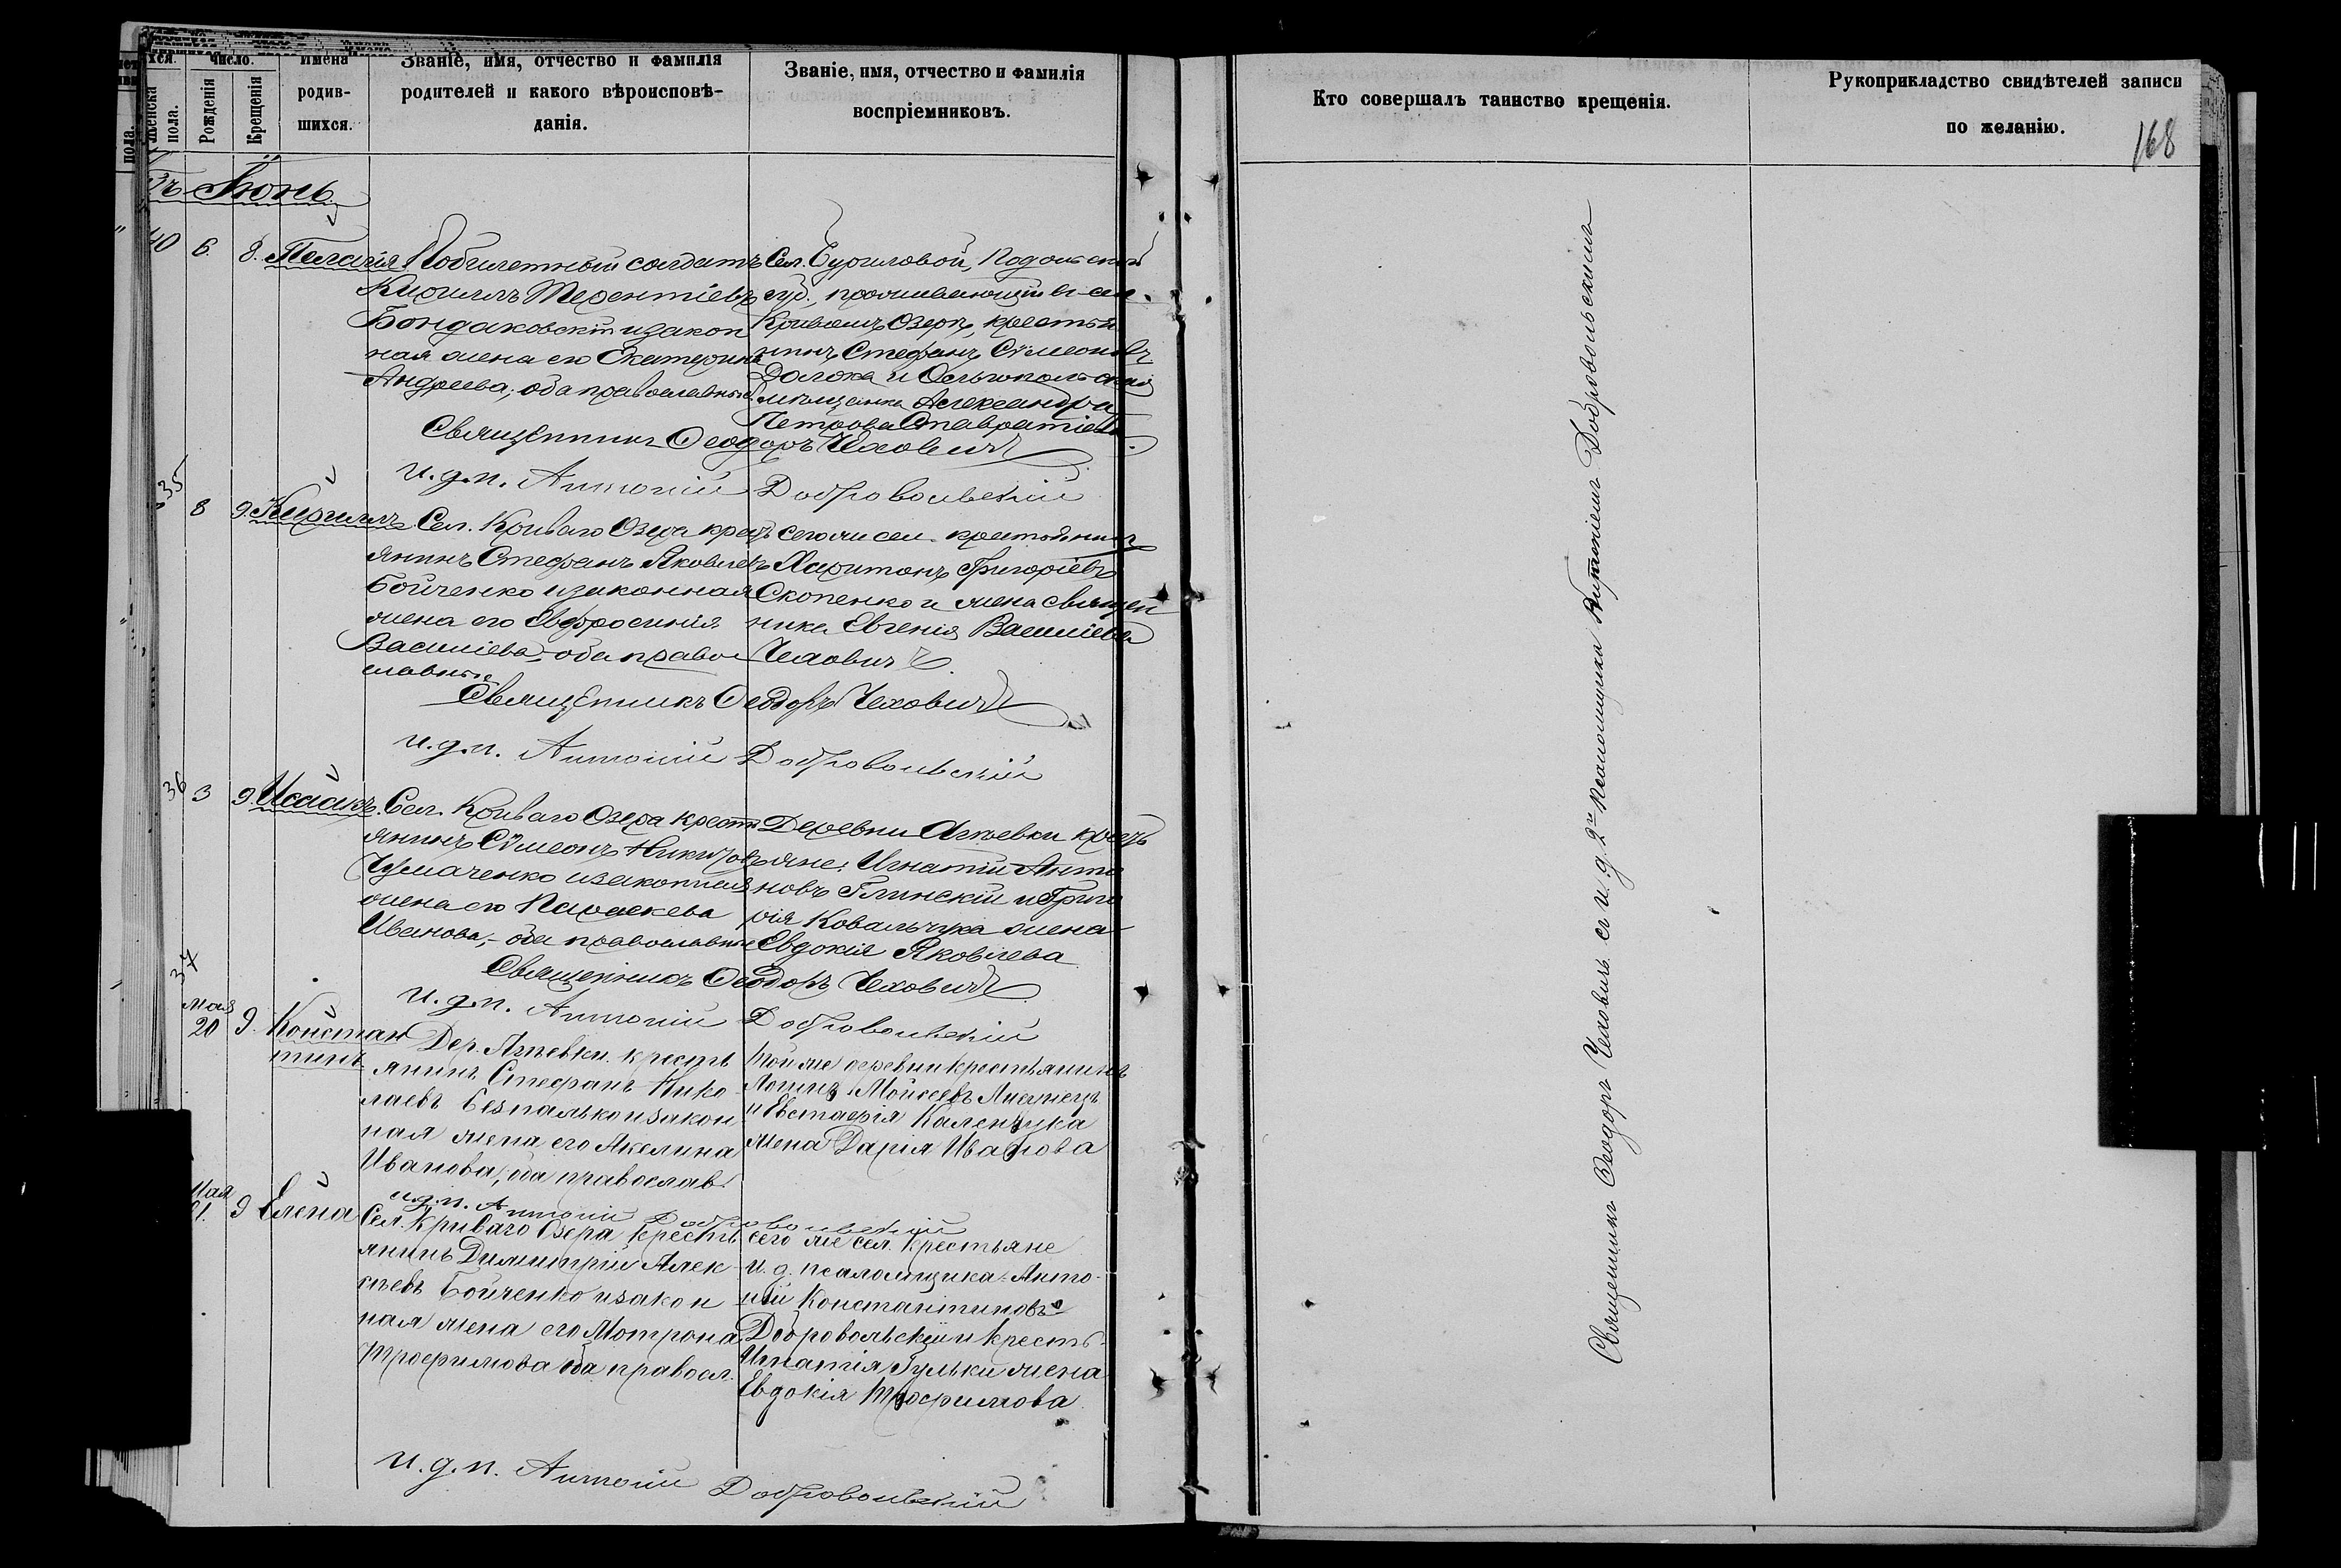 хся.
Число.
Имена
Званіе, имя, отчество и фамилія
Званіе, имя, отчество и фамилія
Кто совершалъ таинство крещенія.
Рукоприкладство свидѣтелей записи
пола.
Женска
пола.
Рожденія
Крещенія
родив-
шихся.
родителей и какого вѣроисповѣ-
данія.
воспріемниковъ.
по желанію.
168
Іюнь
40 6. 8. Пелагія
Побилетный солдатъ
Кириллъ Терентіевъ
Бондаковскій и закон
ная жена его Екатерина
Андреева; оба православные.
Сел. Подольской
губ., проживающій въ сел.
Кривомъ Озерѣ, крестья
нинъ Стефанъ Сѵмеоновъ
и Ольгопольская
мѣщанка Александра
Петрова
Священникъ Ѳеодоръ Чеховичъ
и.д.п. Антоній Добровольскій
35 8 9. Кириллъ
Сел. Криваго Озера крест
янинъ Стефанъ Яковлевъ
Бойченко и законная
жена его Евфросинія
Василіева, оба право
славные
сего же сел. крестьянинъ
Харитонъ Григоріевъ
Скопенко и жена священ
ника Евгенія Василіева
Чеховичъ.
Священникъ Ѳеодоръ Чеховичъ
и.д.п. Антоній Добровольскій
36 3 9. Исаакъ.
Сел. Криваго Озера кресть
янинъ Сѵмеонъ Никитовъ
Чумаченко и законная
жена его Параскева
Иванова, - оба православные
Деревни Агѣевки кресть
яне: Игнатій Анто
новъ Глинскій и Григо
рія Ковальчука жена
Евдокія Яковлева
Священникъ Ѳеодоръ Чеховичъ
и.д.п. Антоній Добровольскій
37
мая
20 9. Констан
тинъ
Дер. Агѣевки кресть
янинъ Стефанъ Нико
лаевъ Безпалько и закон
ная жена его Акелина
Иванова, оба православ.
той же деревни крестьянинъ
Логинъ Мойсеевъ
и Евстафія Каленчука
жена Дарія Иванова
и.д.п. Антоній Добровольскій
Мая
21. 9 Елена
Сел. Криваго Озера кресть
янинъ Димитрій Алек
сѣевъ Бойченко и закон
ная жена его Мотрона
Трофимова оба правосл.
сего же сел. крестьяне
и. д. псаломщика: Анто-
ній Константиновъ
Добровольскій и кресть-
Игнатія Гульки жена
Евдокія Трофимова
и.д.п. Антоній Добровольскій
Священникъ Ѳеодоръ Чеховичъ съ и. д. 2го псаломщика Антоніемъ Добровольскимъ